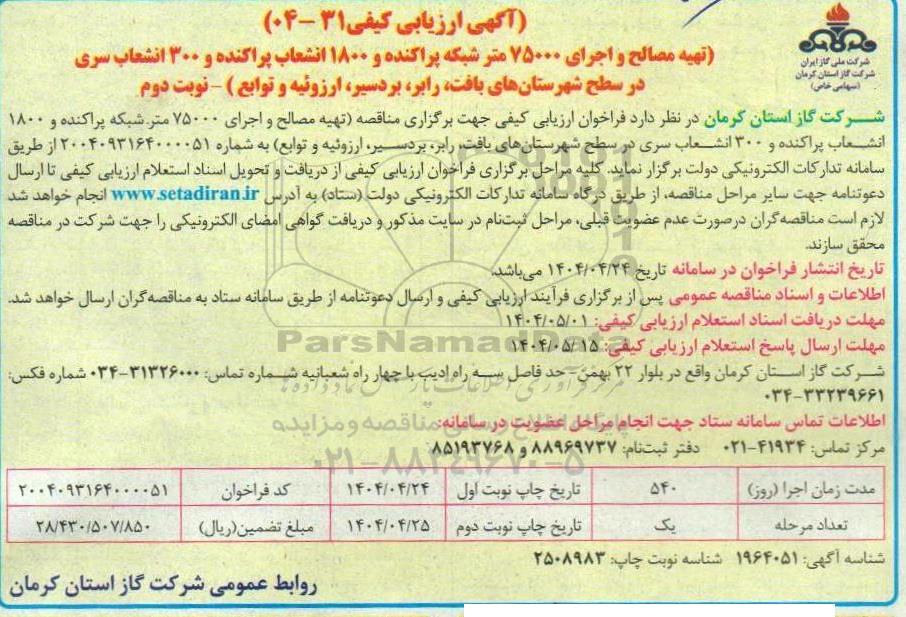 (آگهی ارزیابی کیفی ۳۱-۰۴)
(تهیه مصالح و اجرای ۷۵۰۰۰ متر شبکه پراکنده و ۱۸۰۰ انشعاب پراکنده و ۳۰۰ انشعاب سری
در سطح شهرستان‌های بافت، رابر، بردسیر، ارزوئیه و توابع) - نوبت دوم
شرکت ملی گاز ایران
شرکت گاز استان کرمان
(سهامی خاص)
شرکت گاز استان کرمان در نظر دارد فراخوان ارزیابی کیفی جهت برگزاری مناقصه (تهیه مصالح و اجرای ۷۵۰۰۰ متر شبکه پراکنده و ۱۸۰۰
انشعاب پراکنده و ۳۰۰ انشعاب سری در سطح شهرستان‌های بافت، رابر، بردسیر، ارزوئیه و توابع) به شماره ۲۰۰۴۰۹۳۱۶۴۰۰۰۰۵۱ از طریق
سامانه تدارکات الکترونیکی دولت برگزار نماید. کلیه مراحل برگزاری فراخوان ارزیابی کیفی از دریافت و تحویل اسناد استعلام ارزیابی کیفی تا ارسال
دعوتنامه جهت سایر مراحل مناقصه، از طریق درگاه سامانه تدارکات الکترونیکی دولت (ستاد) به آدرس www.setadiran.ir انجام خواهد شد
لازم است مناقصه‌گران درصورت عدم عضویت قبلی، مراحل ثبت‌نام در سایت مذکور و دریافت گواهی امضای الکترونیکی را جهت شرکت در مناقصه
محقق سازند.
تاریخ انتشار فراخوان در سامانه تاریخ ۱۴۰۴/۰۴/۲۴ می‌باشد.
اطلاعات و اسناد مناقصه عمومی پس از برگزاری فرآیند ارزیابی کیفی و ارسال دعوتنامه از طریق سامانه ستاد به مناقصه‌گران ارسال خواهد شد.
مهلت دریافت اسناد استعلام ارزیابی کیفی: ۱۴۰۴/۰۵/۰۱
مهلت ارسال پاسخ استعلام ارزیابی کیفی: ۱۴۰۴/۰۵/۱۵
ParsNamadData
شرکت گاز استان کرمان واقع در بلوار ۲۲ بهمن - حد فاصل سه راه ادیب با چهار راه شعبانیه شماره تماس: ۳۱۳۲۶۰۰۰-۰۳۴ شماره فکس:
۰۳۴-۳۳۲۳۹۶۶۱
اطلاعات تماس سامانه ستاد جهت انجام مراحل عضویت در سامانه:
پایگاه اطلاع رسانی مناقصه و مزایده
مرکز تماس: ۴۱۹۳۴-۰۲۱ دفتر ثبت‌نام: ۸۸۹۶۹۷۳۷ و ۸۵۱۹۳۷۶۸
۰۲۱-۸۸۳۴۹۶۷۰-۵
مدت زمان اجرا (روز) ۵۴۰ تاریخ چاپ نوبت اول ۱۴۰۴/۰۴/۲۴ کد فراخوان ۲۰۰۴۰۹۳۱۶۴۰۰۰۰۵۱
تعداد مرحله یک تاریخ چاپ نوبت دوم ۱۴۰۴/۰۴/۲۵ مبلغ تضمین(ریال) ۲۸/۴۳۰/۵۰۷/۸۵۰
شناسه آگهی: ۱۹۶۴۰۵۱ شناسه نوبت چاپ: ۲۵۰۸۹۸۳
روابط عمومی شرکت گاز استان کرمان